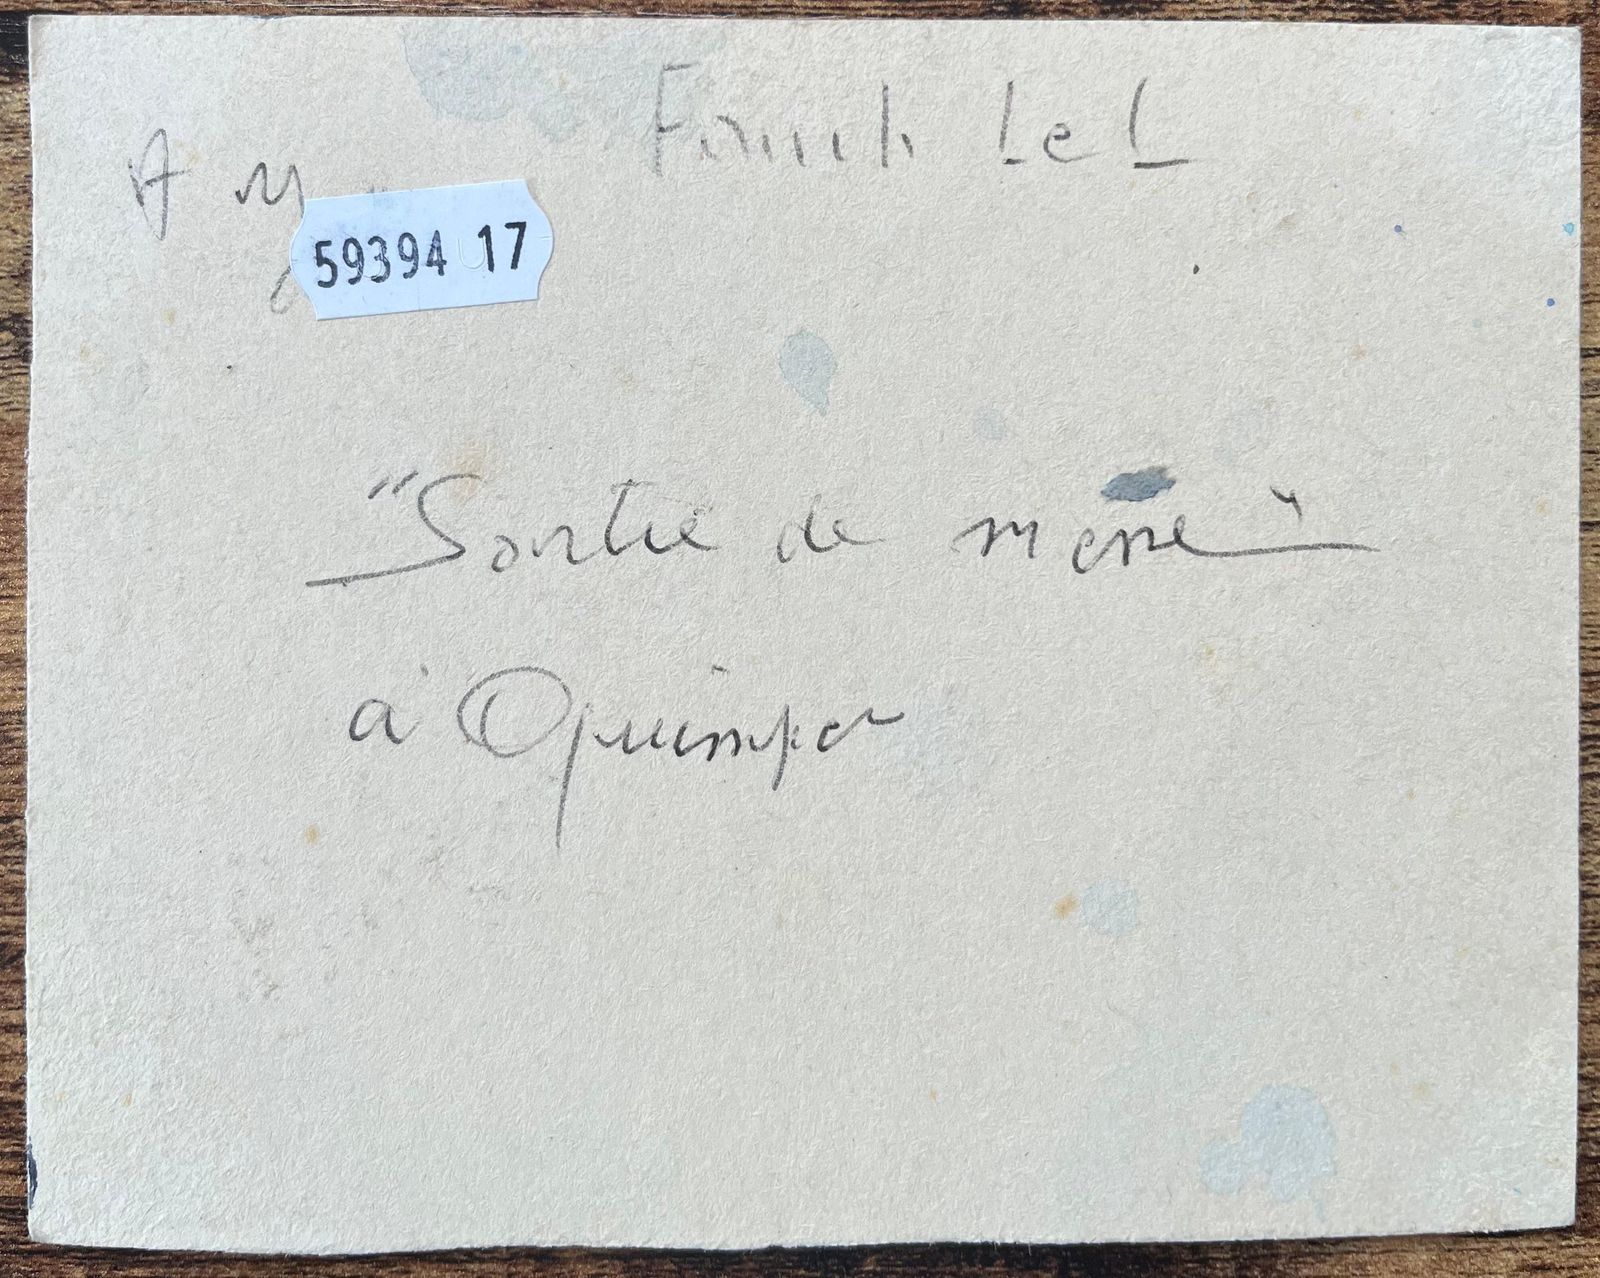 Fanch Le L
A My
59394 17
"Sortie de messe"
à Quimper